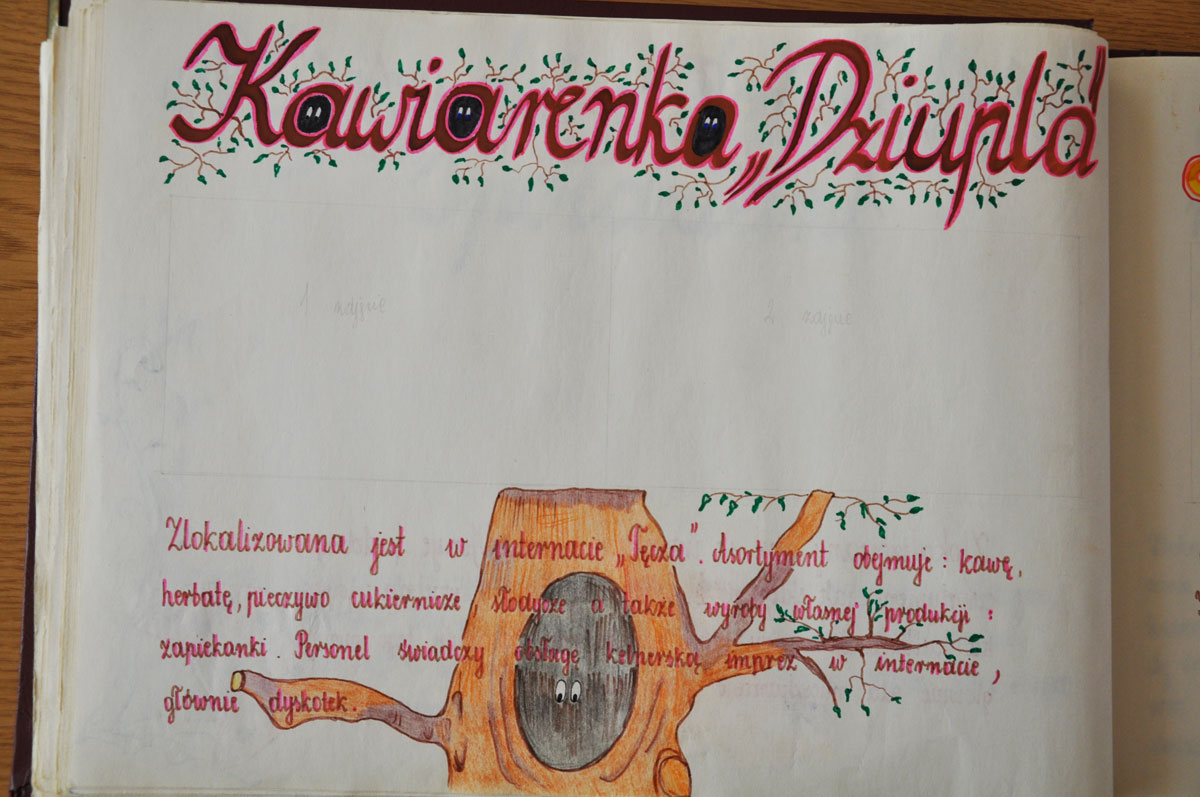 Kawiarenka „Dziupla”
1 zdjęcie 2 zdjęcie
Zlokalizowana jest w internacie „Tęcza”. Asortyment obejmuje: kawę,
herbatę, pieczywo cukiernicze słodycze a także wyroby własnej produkcji:
zapiekanki. Personel świadczy obsługę kelnerską imprez w internacie,
głównie dyskotek.